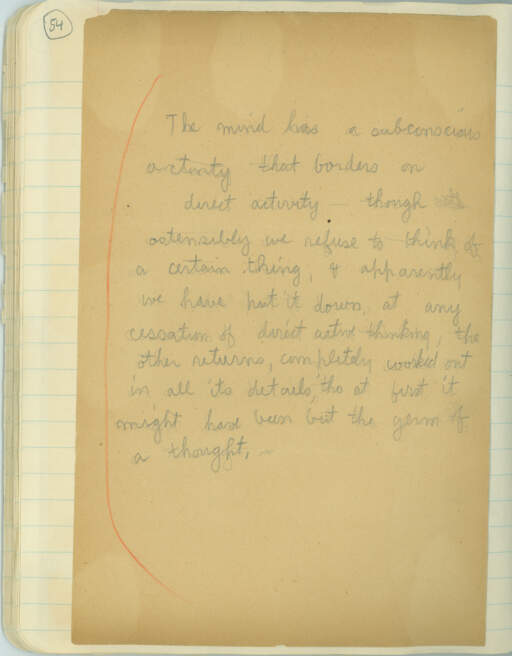 54
The mind has a subconscious
activity that borders on
direct activity — though
ostensibly we refuse to think of
a certain thing, & apparently
we have put it down, at any
cessation of direct active thinking, the
other returns, completely worked out
in all its details, tho at first it
might have been but the germ of
a thought. —